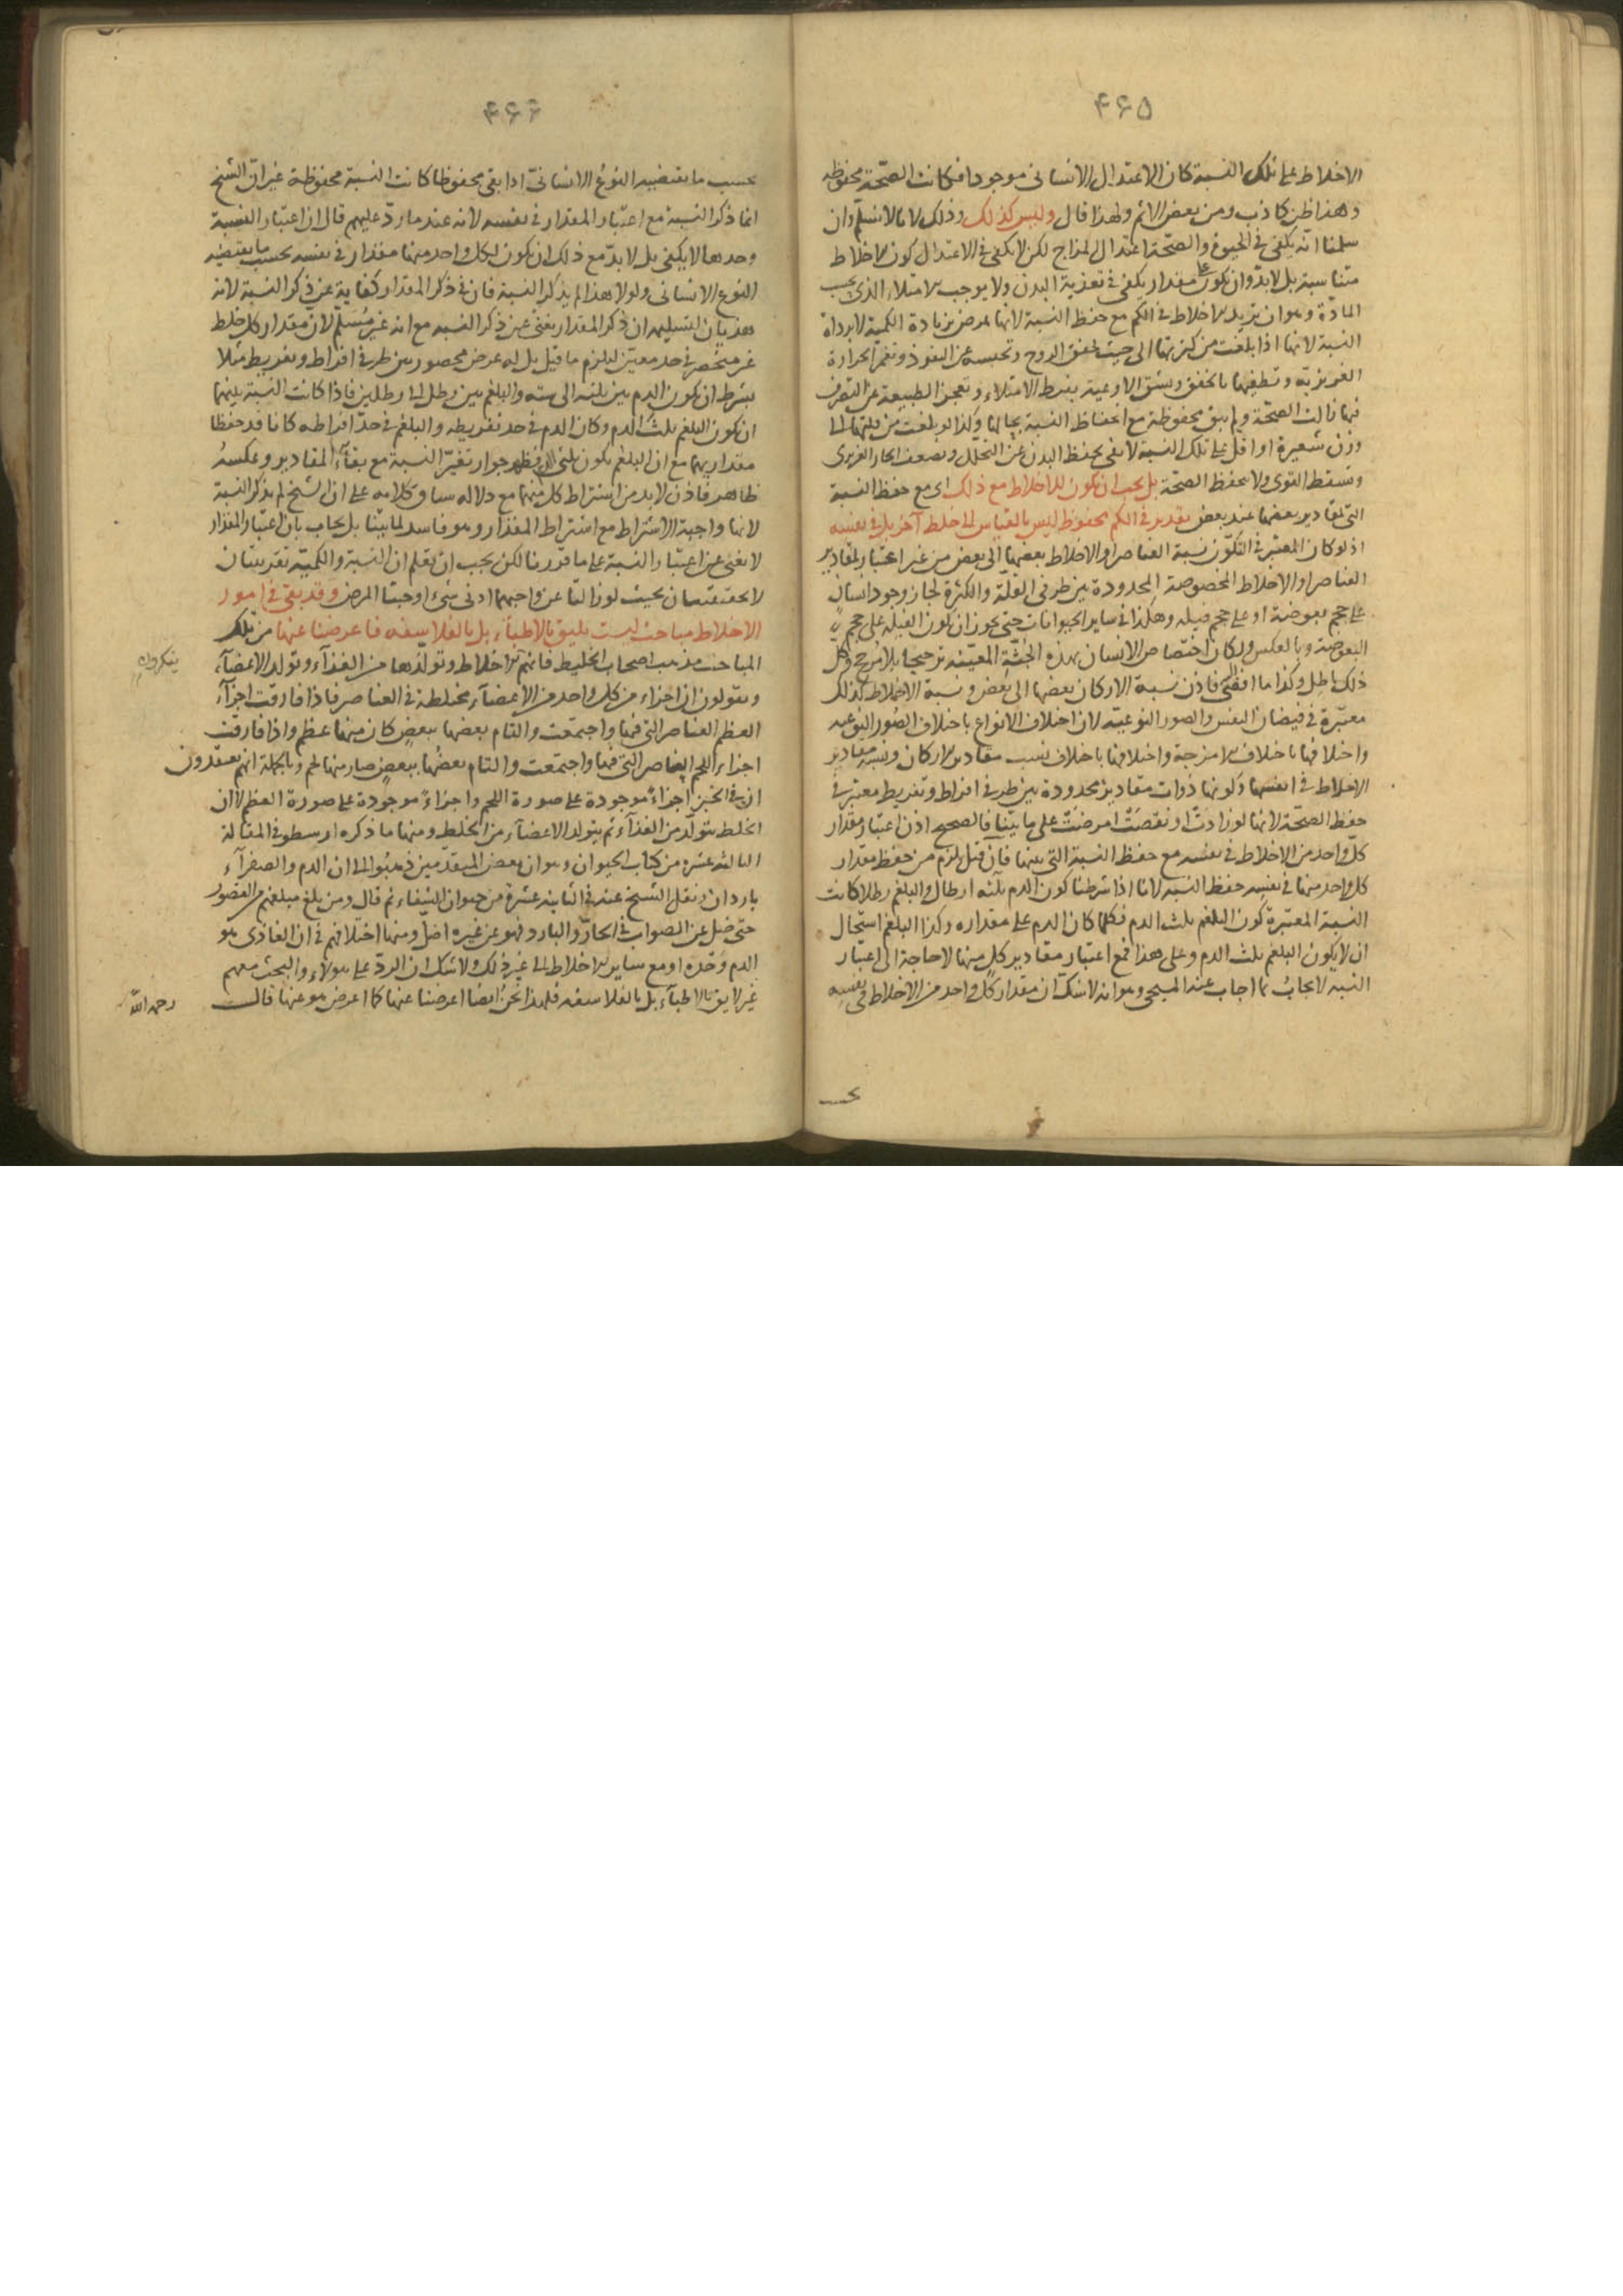 ۴۶۵
الاخلاط على تلك النسبة كان الاعتدال الانسانى موجودا فكانت الصحّة محفوظه
وهذا ظن كاذب ومن بعض الاثم ولهذا قال وليس كذلك وذلك لانا لا نسلّم وان
سلمنا انّه يكفى فى الحيوة والصحّة اعتدال المزاج لكن لا يكفى فى الاعتدال كون الاخلاط
متناسبة بل لا بدّ وان يكون على مقدار يكفى فى تغذية البدن ولا يوجب الامتلاء الذى بحسب
المادّة وهو ان تزيد الاخلاط فى الكم مع حفظ النسبة لانها تمرض بزيادة الكمية لا برداة
النسبة لانها اذا بلغت من كثرتها الى حيث تخنق الروح وتحبسه عن النفوذ وتغمر الحرارة
الغريزية وتطفيها بالخنق ويشق الاوعية بفرط الامتلاء وتعجز الطبيعة عن التصرف
فيها زالت الصحّة ولم يبق محفوظة مع انحفاظ النسبة بحالها وكذا لو بلغت من قلتها الى
وزن شعيرة او اقل على تلك النسبة لا تفى بحفظ البدن عن التحلّل ويضعف الحار الغريزى
وتسقط القوى ولا يحفظ الصحّة بل يجب ان يكون للاخلاط مع ذلك اى مع حفظ النسبة
التى لمقادير بعضها عند بعض تقدير فى الكم محفوظ ليس بالقياس الى خلط آخر بل فى نفسه
اذ لو كان المعتبر فى التكوّن نسبة العناصر او الاخلاط بعضها الى بعض من غير اعتبار لمقادير
العناصر او الاخلاط المخصوصة المحدودة بين طرفى القلّة والكثرة لجاز وجود انسان
على حجم بعوضة او على حجم فيله وهكذا فى ساير الحيوانات حتى يجوز ان يكون الفيلة على حجم
البعوضة وبالعكس ولكان اختصاص الانسان بهذه الجثّة المعيّنة ترجيحا بلا مرجّح وكل
ذلك باطل وكذا ما افضى فاذن نسبة الاركان بعضها الى بعض ونسبة الاخلاط كذلك
معتبرة فى فيضان النفس والصور النوعيّة لان اختلاف الانواع باختلاف الصور النوعيه
واختلافها باختلاف الامزجة واختلافها باختلاف نسب مقادير الاركان ونسبة مقادير
الاخلاط فى انفسها وكونها ذوات مقادير محدودة بين طرفى افراط وتفريط معتبر فى
حفظ الصحّة لانها لو زادت او نقصت امرضت على ما بيّنا فالصحيح اذن اعتبار مقدار
كل واحد من الاخلاط فى نفسه مع حفظ النسبة التى بينها فان قيل يلزم من حفظ مقدار
كل واحد منها فى نفسه حفظ النسبه لانا اذا شرطنا كون الدم ثلثه ارطال والبلغم رطلا كانت
النسبة المعتبرة كون البلغم ثلث الدم فكلما كان الدم على مقداره وكذا البلغم استحال
ان لا يكون البلغم ثلث الدم وعلى هذا فمع اعتبار مقادير كل منها لا حاجة الى اعتبار
النسبه لا يجاب بما اجاب عنه المسيحى وهو انه لا شك ان مقدار كل واحد من الاخلاط فى نفسه
۴۶۶
بحسب ما يقتضيه النوع الانسانىّ اذا بقى محفوظا كانت النسبة محفوظة غير انّ الشيخ
انما ذكر النسبة مع اعتبار المقدار فى نفسه لانه عند ما ردّ عليهم قال ان اعتبار النسبة
وحدها لا يكفى بل لا بدّ مع ذلك ان يكون لكل واحد منها مقدار فى نفسه بحسب ما يقتضيه
النوع الانسانى ولولا هذا لم يذكر النسبة فان فى ذكر المقدار كفاية عن ذكر النسبة لانه
هذيان لتسليمه ان ذكر المقدار يغنى عن ذكر النسبه مع انه غير مُسلّم لان مقدار كل خلط
غير منحصر فى حد معيّن ليلزم ما قيل بل له عرض محصور بين طرفى افراط وتفريط مثلا
بشرط ان يكون الدم بين ثلثه الى سته والبلغم بين رطل الى رطلين فاذا كانت النسبة بينهما
ان يكون البلغم ثلث الدم وكان الدم فى حد تفريطه والبلغم فى حدّ افراطه كانا قد حفظا
مقداريهما مع ان البلغم يكون ثلثى الدم فظهر جواز تغيّر النسبة مع بقاء المقادير وعكسه
ظاهر فاذن لا بد من اشتراط كل منهما مع دلاله سياق كلامه على ان الشيخ لم يذكر النسبة
لانها واجبة الاشتراط مع اشتراط المقدار وهو فاسد لما بيّنا بل يجاب بان اعتبار المقدار
لا يغنى عن اعتبار النسبة على ما قررنا لكن يجب ان تعلم ان النسبة والكمّيّة تقريبيتان
لا حقيقيتان بحيث لو زالتا عن واجبهما ادنى شىء اوجبتا المرض وقد بقى فى امور
الاخلاط مباحث ليست يليق بالاطباء بل بالفلاسفه فاعرضنا عنها من تلك
المباحث مذهب اصحاب الخليط فانهم الاخلاط وتولّدها من الغذاء وتولد الاعضاء
ينكرون
ويقولون ان اجزاء من كل واحد من الاعضاء مختلطة فى العناصر فاذا فارقت اجزاء
العظم العناصر التى فيها واجتمعت والتام بعضها ببعض كان منها عظم واذا فارقت
اجزاء اللحم العناصر التى فيها واجتمعت والتام بعضها ببعض صار منها لحم وبالجملة انهم يعتقدون
ان فى الخبز اجزاءً موجودة على صورة اللحم واجزاءً موجودة على صورة العظم لا ان
الخلط يتولّد من الغذاء ثم يتولد الاعضاء من الخلط ومنها ما ذكره ارسطو فى المقالة
الثالثه عشره من كتاب الحيوان وهو ان بعض المتقدمين ذهبوا الى ان الدم والصفراء
باردان ونقل الشيخ عنه فى الثانية عشرة من حيوان الشفاء ثم قال ومن بلغ مبلغهم من القصور
حتى ضل عن الصواب فى الحارّ والبارد فهو عن غيره اضلّ ومنها اختلافهم فى ان الغاذى هو
الدم وحده او مع ساير الاخلاط الى غير ذلك ولا شك ان الردّ على هولاء والبحث معهم
غير لايق بالاطباء بل بالفلاسفه فلهذا نحن ايضا اعرضنا عنها كما اعرض هو عنها قال
رحمه الله